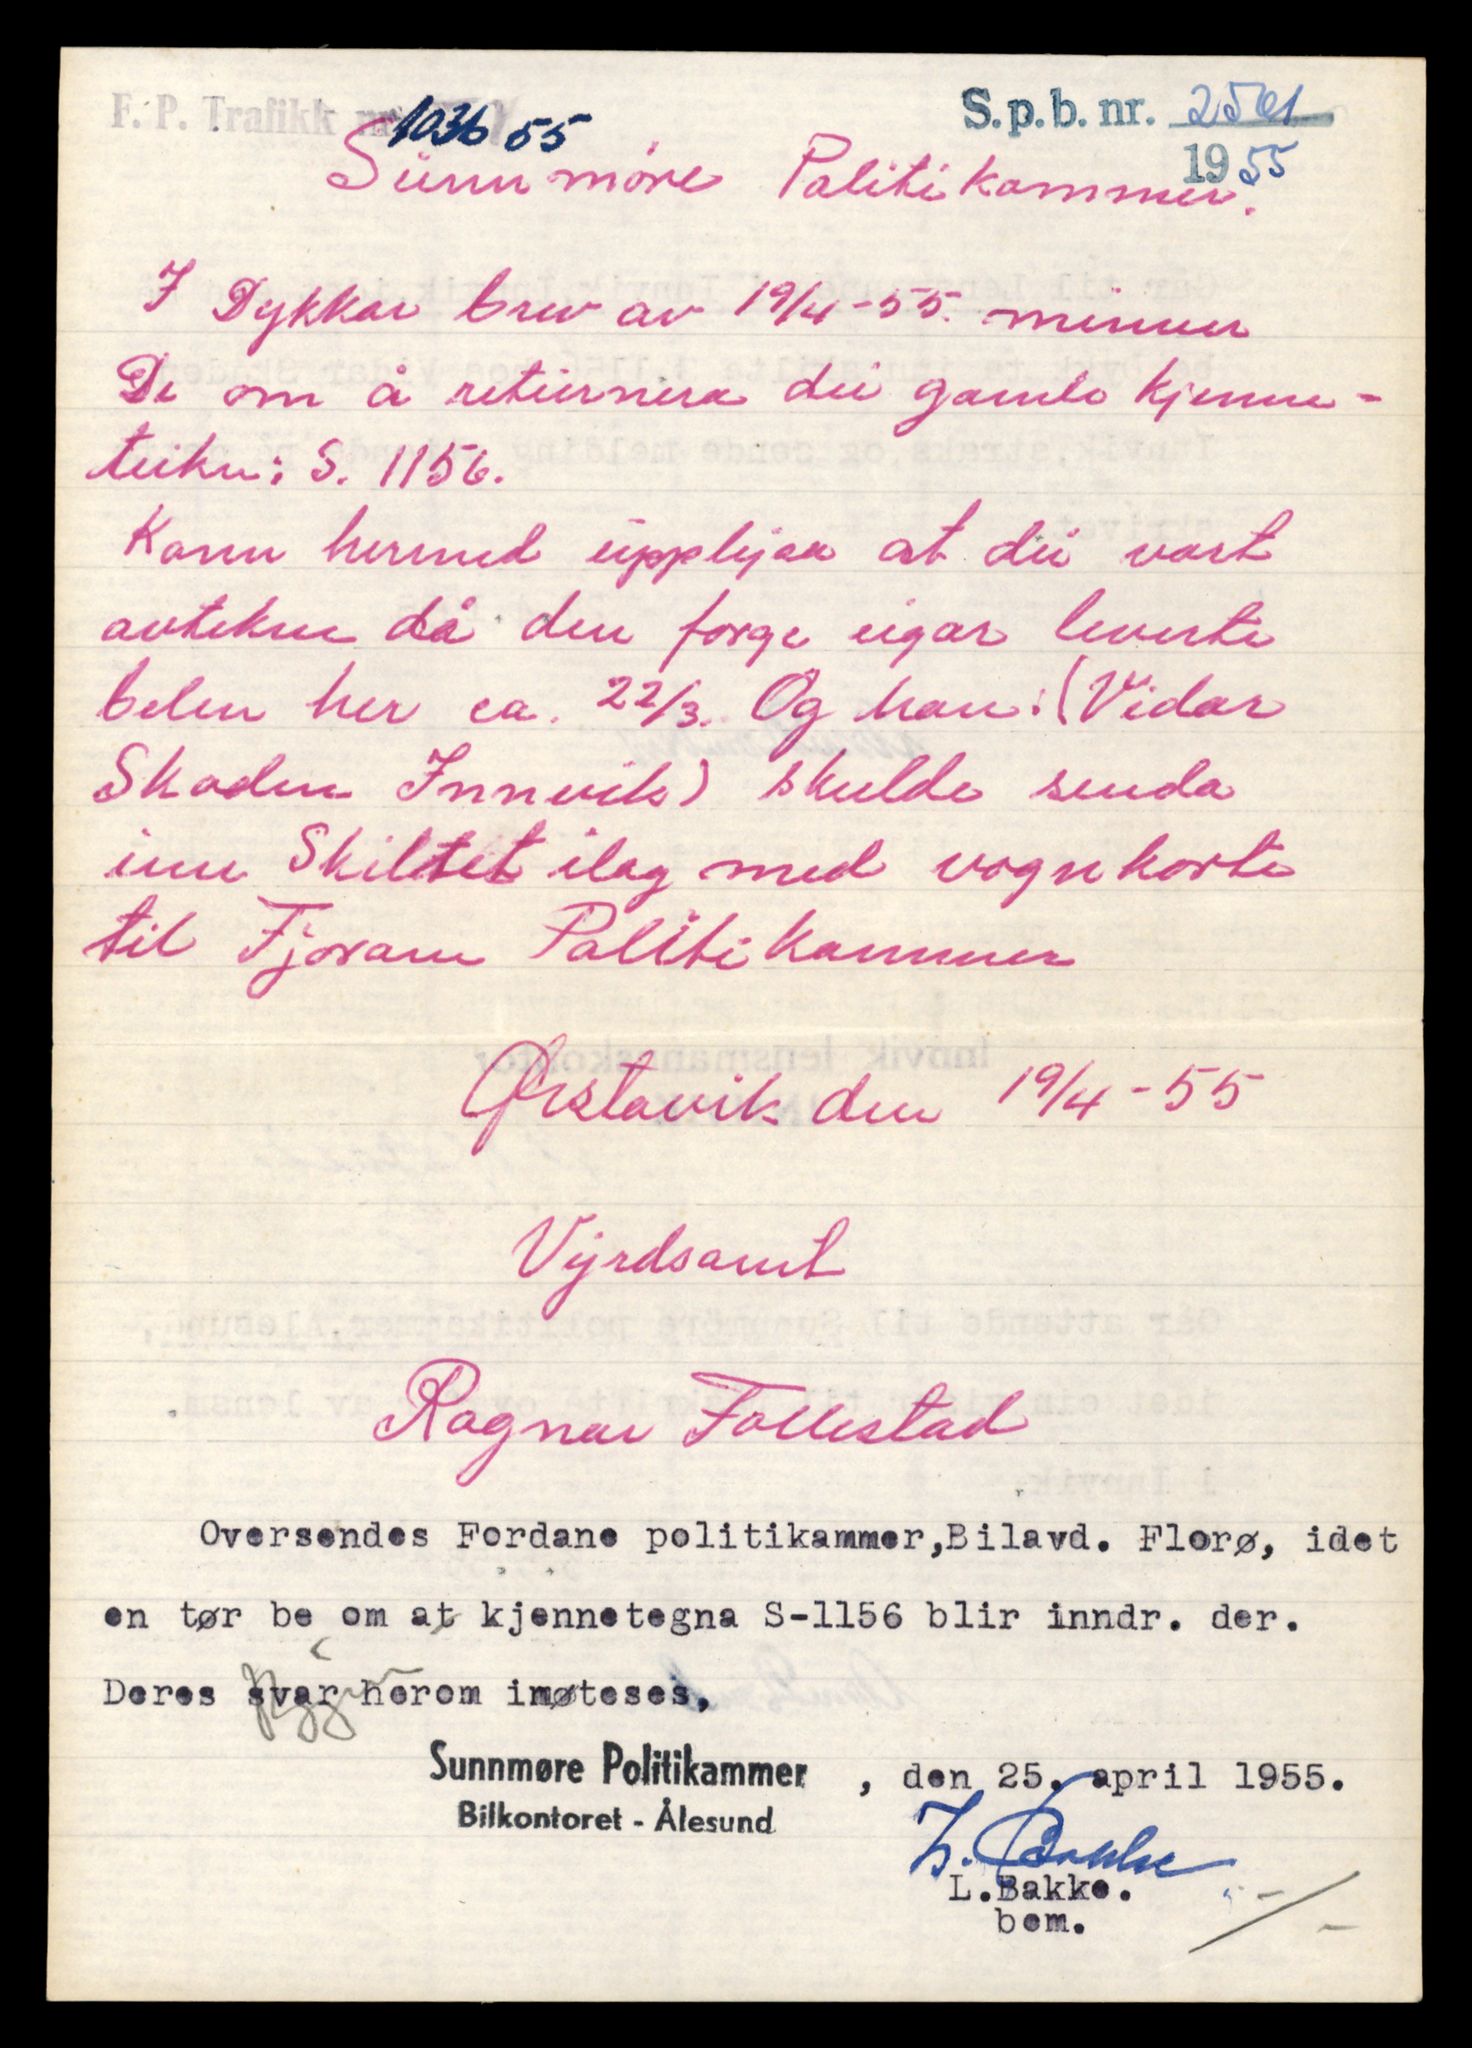 F. P. Trafikk nr. 1036 55
S.p.b. nr. 2561
1955
Sunnmøre Politikammer.
I Dykkar brev av 19/4-55. minner
De om å returnera dei gamle kjenne-
teikn: S. 1156.
Kann hermed upplysa at dei vart
avtekne då den forge eigar leverte
belen her ca. 22/3. Og han: (Vidar
Skaden Innvik) skulde senda
inn Skiltet ilag med vognkorte
til Fjorane Politikammer
Ørstavik den 19/4-55
Vyrdsamt
Ragnar Follestad
Oversendes Fordane politikammer,Bilavd. Florø, idet
en tør be om at kjennetegna S-1156 blir inndr. der.
Deres svar herom imøteses.
Sunnmøre Politikammer , den 25. april 1955.
Bilkontoret - Ålesund
L. Bakke
L.Bakke.
bem.